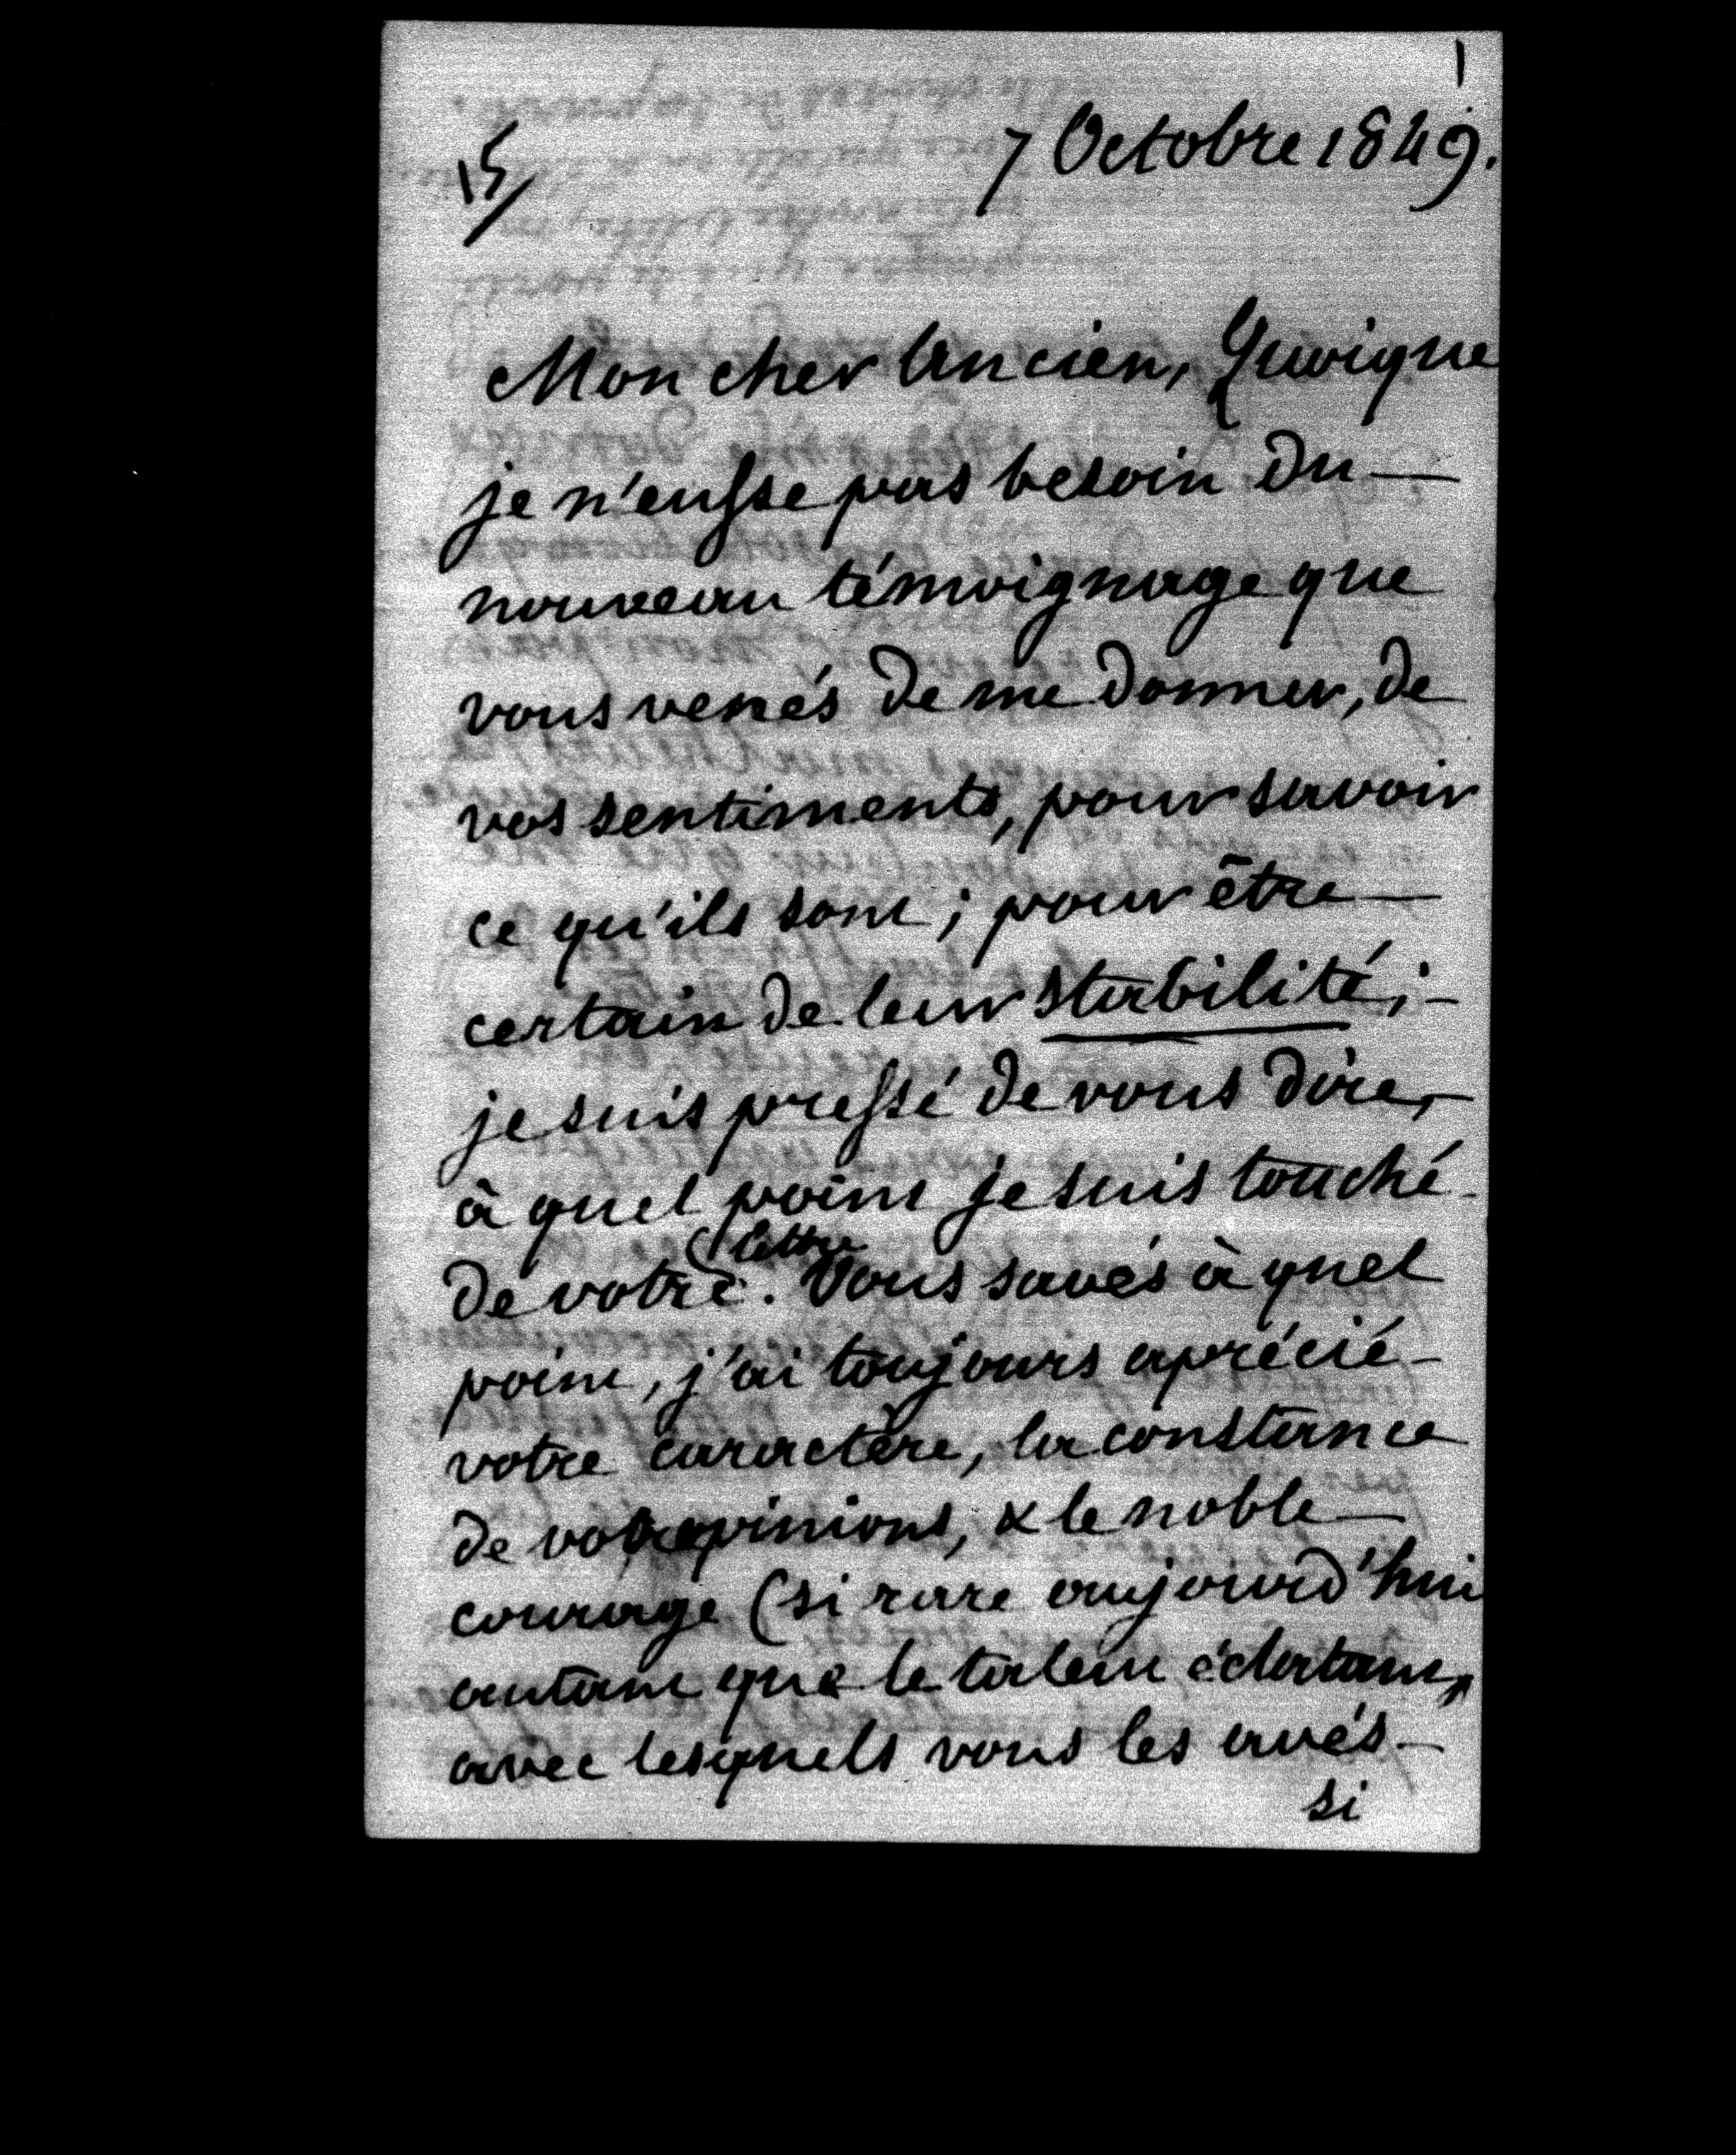 1
15/ 7 Octobre 1849.
Mon cher Ancien, Quoique
je n'eusse pas besoin du —
nouveau témoignage que
vous venés de me donner, de
vos sentiments, pour savoir
ce qu'ils sont ; pour être —
certain de leur stabilité ; -
je suis pressé de vous dire, -
à quel point je suis touché -
lettre
de votre. Vous savés à quel
point, j'ai toujours aprécié -
votre caractère, la constance
de votre opinions, & le noble —
courage (si rare aujourd'hui
autant que le talent éclatant,
avec lesquels vous les avés -
si